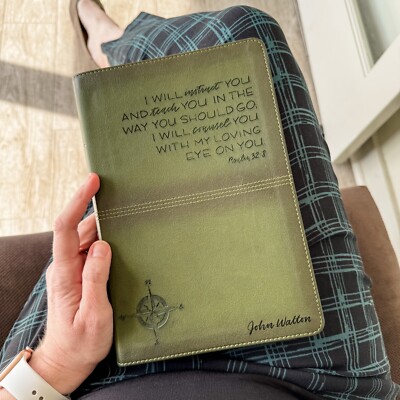 I WILL instruct YOU
AND teach YOU IN THE
WAY YOU SHOULD GO;
I WILL counsel YOU
WITH MY LOVING
EYE ON YOU.
Psalm 32:8
John Walten